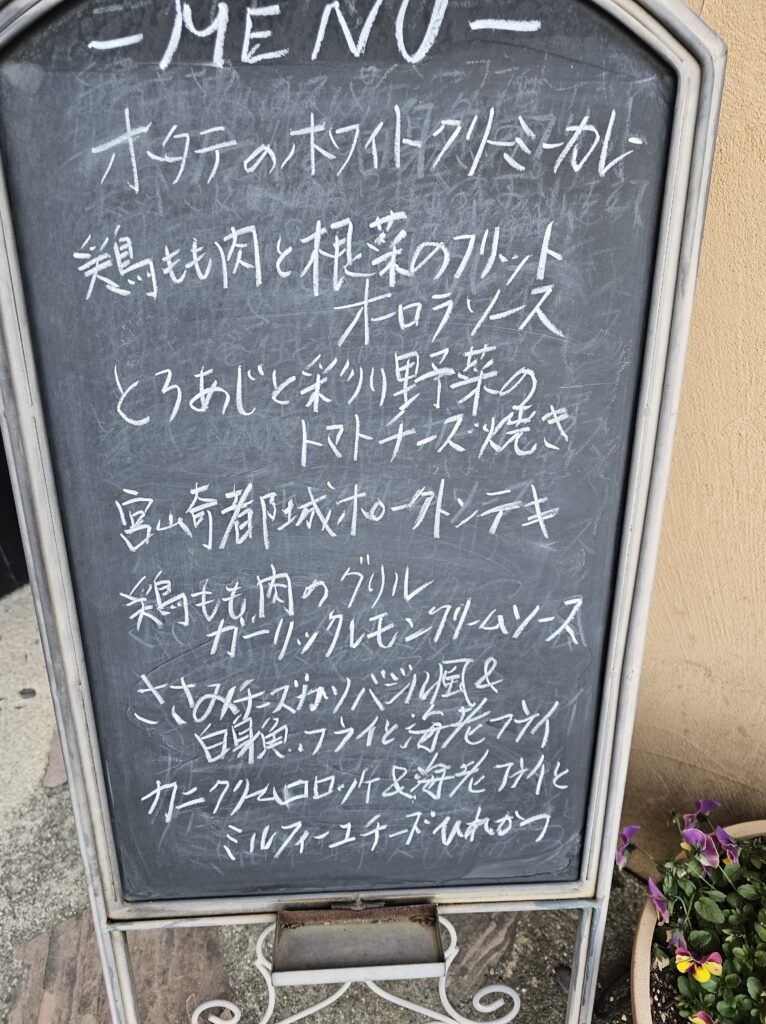 -MENU-
ホタテのホワイトクリーミーカレー
鶏もも肉と根菜のフリット
オーロラソース
とろあじと彩り野菜の
トマトチーズ焼き
宮崎都城ポークトンテキ
鶏もも肉のグリル
ガーリックレモンクリームソース
ささみチーズカツバジル風&
白身魚フライと海老フライ
カニクリームコロッケ&海老フライと
ミルフィーユチーズひれかつ